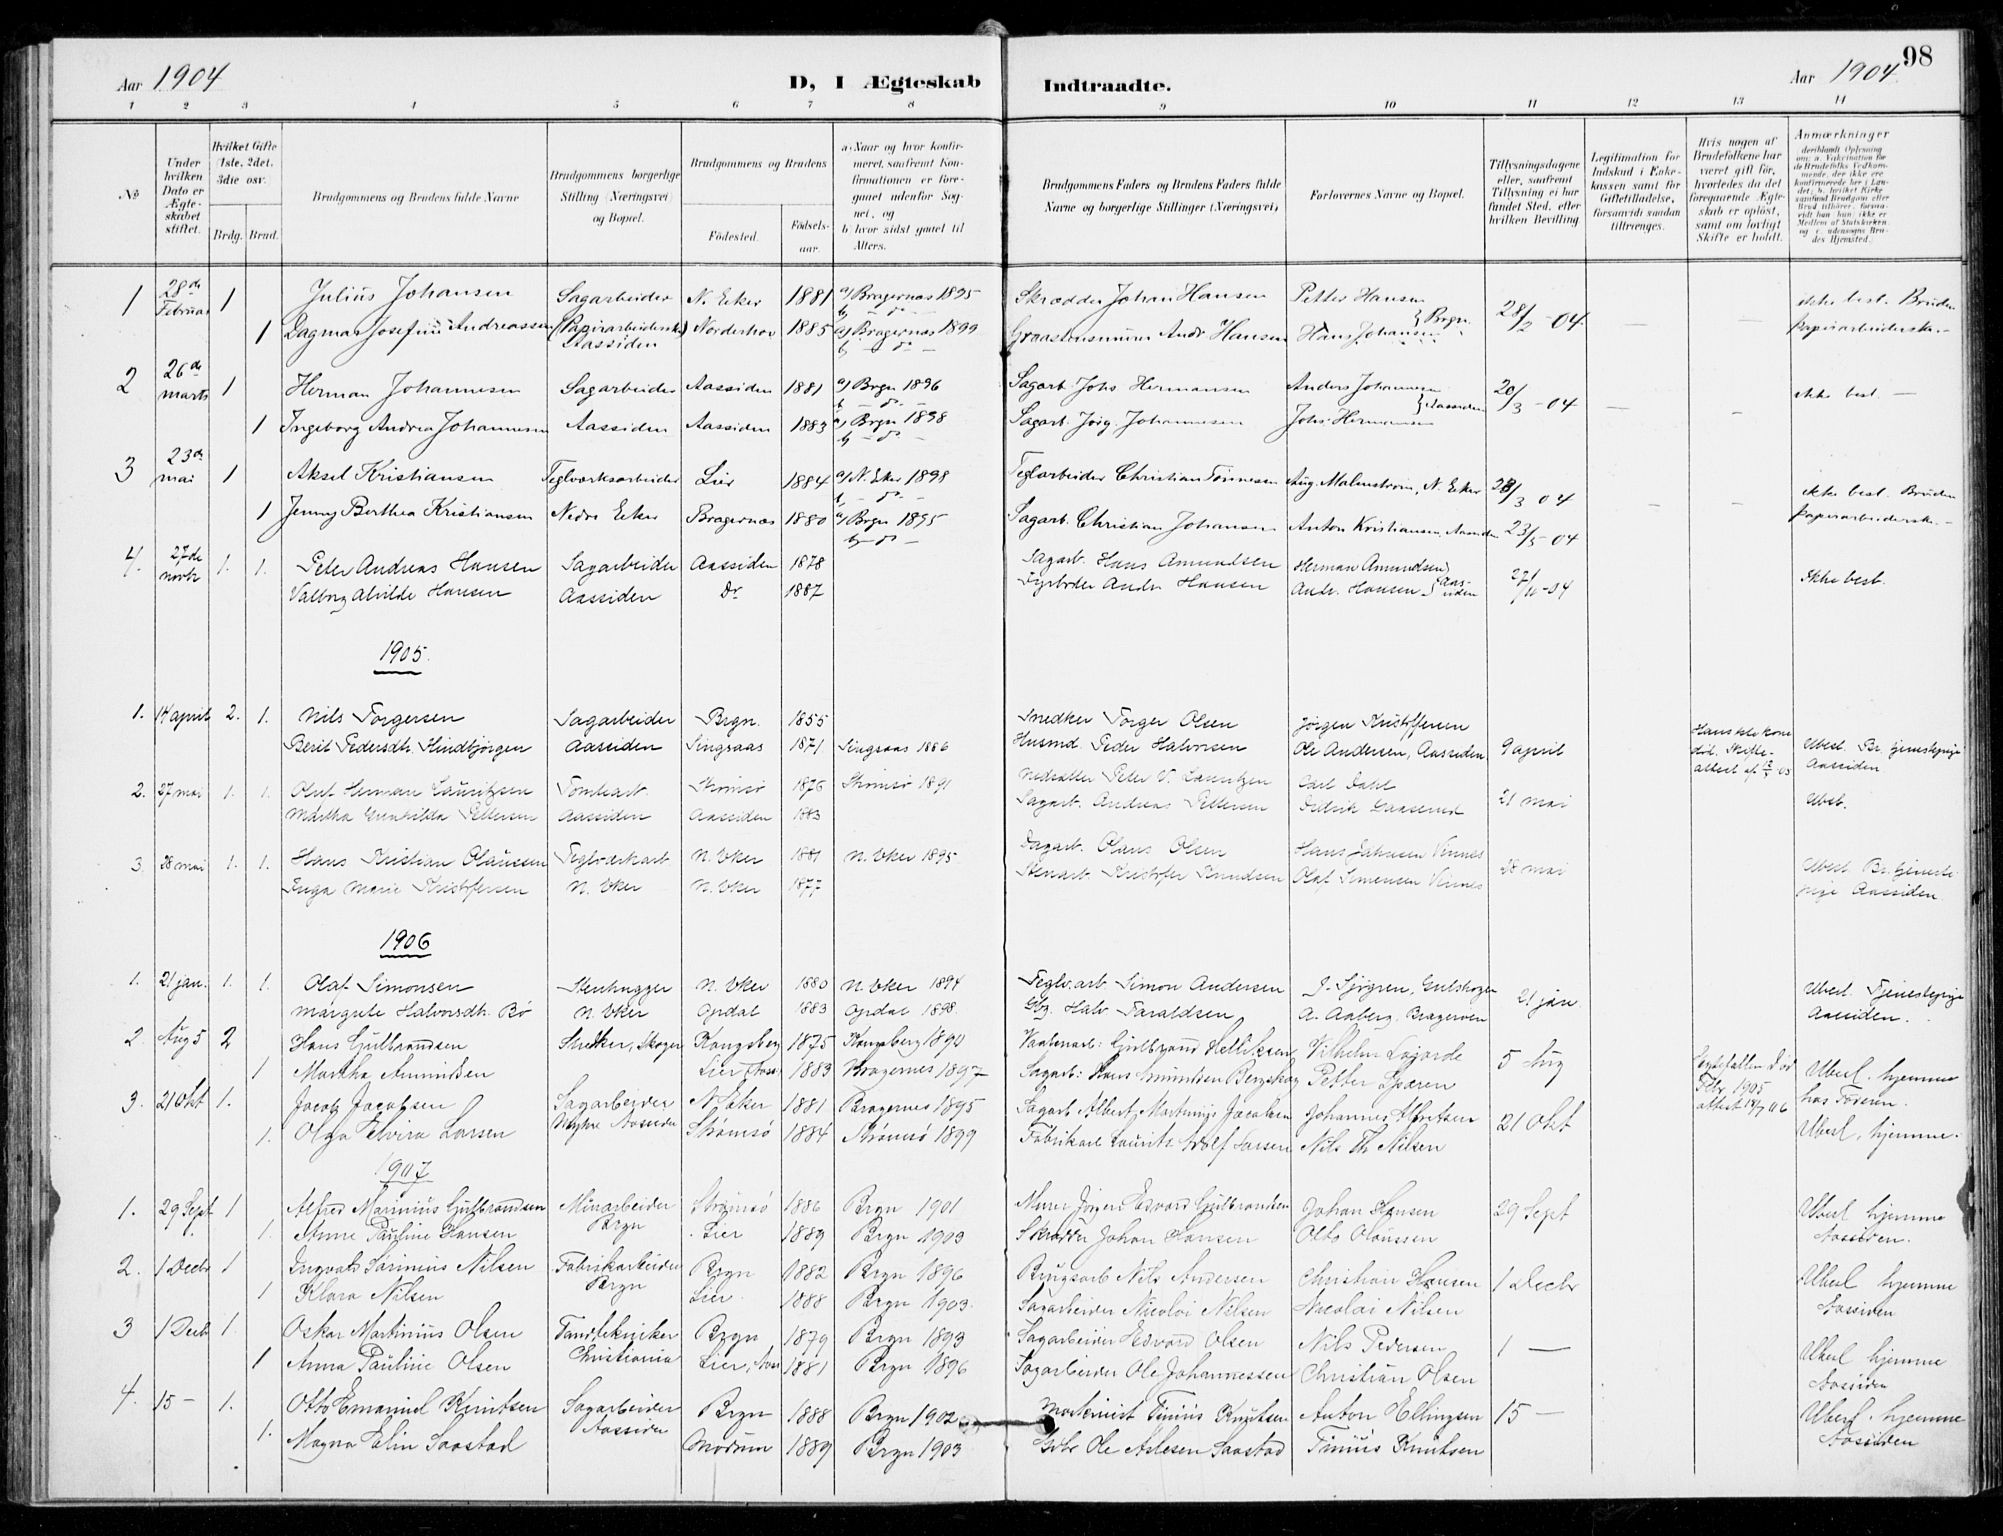 98
Aar 1904
D, I Ægteskab Indtraadte.
Aar 1904
1 2 3 4 5 6 7 8 9 10 11 12 13 14
No.
Under hvilken Dato er Ægteskabet stiftet.
Hvilket Gifte 1ste, 2det, 3die osv.
Brdg. Brud.
Brudgommens og Brudens fulde Navne
Brudgommens borgerlige Stilling (Næringsvei) og Bopæl.
Brudgommens og Brudens
Fødested. Fødselsaar.
a) Naar og hvor konfirmeret, saafremt Konfirmationen er foregaaet udenfor Sognet, og b) hvor sidst gaaet til Alters.
Brudgommens Faders og Brudens Faders fulde Navne og borgerlige Stillinger (Næringsvei)
Forlovernes Navne og Bopæl.
Tillysningsdagene eller, saafremt Tillysning ei har fundet Sted, efter hvilken Bevilling
Legitimation for Indskud i Enkekassen samt for Giftetilladelse, forsaavidt saadan tiltrænges.
Hvis nogen af Brudefolkene har været gift før, hvorledes da det foregaaende Ægteskab er opløst, samt om lovligt Skifte er holdt.
Anmærkninger
1 28de Februar 1 Julius Johansen Sagarbeider N. Eker 1881 a) Bragernæs 1895 Skrædder Johan Hansen Petter Hansen 28/2-04 ikke besl. Bruden
1 Dagmar Josefine Andreassen (Papirarbeiderske) Aassiden Norderhov 1885 a) Bragernæs 1899 Andr. Hansen Hans Johansen } Brgn. papirarbeiderske.
2 26de marts 1 Herman Johannesen Sagarbeider Aassiden 1881 a) Brgn 1896 Sagarb. Johs Hermansen Anders Johannesen 20/3-04 ikke besl.
1 Ingeborg Andrea Johannesen Aassiden Aassiden 1883 a) Brgn 1898 Sagarb. Jørg. Johannesen Johs. Hermansen } Aassiden
3 23de mai 1 Aksel Kristiansen Teglværksarbeider Lier 1884 a) N. Eker 1898 Teglarbeider Christian Tønnesen Aug. Malmstrøm, N. Eker 04 ikke besl. Bruden
1 Jenny Berthea Kristiansen Nedre Eker Bragernæs 1880 a) Brgn 1895 Sagarb. Christian Johansen Anton Kristiansen, Aassiden 23/5-04 papirarbeiderske.
4. 27de novbr 1. 1. Peter Andreas Hansen Sagarbeider Aassiden 1878 Sagarb. Hans Amundsen Herman Amundsen 27/11-04 Ikke besl.
Valborg Alvilde Hansen Aassiden Do 1887 Fyrbøder Andr. Hansen Andr. Hansen } Aassiden
1905.
1. 14 april 2. 1. Nils Torgersen Sagarbeider Brgn. 1855 Snedker Torger Olsen Jørgen Kristoffersen 9 april
Berit Pedersdtr. Hindbjørgen Aassiden Singsaas 1871 Singsaas 1886 Husmd. Peder Halvorsen Ole Andersen, Aassiden Ubesl. Br. tjenestepige Aassiden
2. 27 mai 1. 1. Olaf Herman Lauritzsen Tomtearb. Strømsø 1876 Strømsø 1891 Peter V. Lauritzen Carl Dahl 21 mai Ubesl.
Martha Gunhilda Pettersen Aassiden Aassiden 1883 Sagarb. Andreas Pettersen
3. 28 mai 1. 1. Hans Kristian Olaussen Teglværkarb. N. Eker 1881 N. Eker 1895. Dagarb. Olaus Olsen Hans Johnsen Vinnes 28 mai Ubesl. Br. tjenestepige Aassiden
Inga Marie Kristoffersen N. Eker N. Eker 1877 Stenarb. Kristofer Knudsen Olaf Simensen Vinnes
1906
1. 21 jan. 1. 1. Olaf Simonsen Stenhugger N. Eker 1880 N. Eker 1894 Teglv.arb. Simon Andersen J. Sjögren, Gulskogen 21 jan Ubesl. Tjenestepige Aassiden.
Margrete Halvorsdtr. Bø N. Eker Opdal 1883 Opdal 1898. Gbr. Halv. Taraldsen A. Aaberg. Bragernæs
2. Aug 5 2 Hans Gulbrandsen Snedker, Skoger Kongsberg 1875 Kongsberg 1890 Vaabenarb: Gulbrand Helliksen Vilhelm 5 Aug Ubesl. hjemme hos Foreren.
1 Martha Amundsen Lier 1883 Bragernes 1897 Sagarb: Hans Amundsen Bergskog Petter
3. 21 Okt 1. Jacob Jacobsen Sagarbeider N. Eker 1881 Bragernes 1895 Sagarb Albert Martinius Jacobsen Johannes 21 Okt Ubesl. hjemme.
1. Olga Elvira Larsen Strømsø 1884 Strømsø 1899 Lauritz Adolf Larsen Nils Th Nilsen
1907
1. 29 Sept 1 Alfred Marinius Gulbrandsen Minarbeider Brgn Strømsø 1886 Brgn 1901 Murer Jörgen Edvard Gulbrandsen Johan Hansen 29 Sept Ubesl hjemme Aassiden.
1. Anne Pauline Hansen Lier 1889 Brgn 1903 Skrædder Johan Hansen Otto Olaussen
2. 1 Decbr 1 Ingvald Sørinius Nilsen Fabrikarbeider Brgn Brgn 1882 Brgn 1896 Brugsarb Nils Andersen Christian Hansen 1 Decbr Ubesl hjemme Aassiden
1 Klara Nilsen Lier. 1888 Brgn 1903. Sagarbeider Nicolai Nilsen Nicolai Nilsen
3 1 Decb 1. Oskar Martinius Olsen Tandtekniker Christiania Brgn 1879 Brgn 1893 Sagarbeider Edvard Olsen Nils Pedersen 1 — Ubesl hjemme Aassiden
1 Anna Pauline Olsen Lier, Aass 1881 Brgn 1896 Sagarbeider Ole Johannessen Christian Olsen
4. 15 — 1. Otto Emanuel Knutsen Sagarbeider Aassiden Brgn 1888 Brgn 1902 Maskinist Tinius Knutsen Anton Ellingsen 15 — Ubesl hjemme Aassiden
1. Magna Elin Saastad Modum 1889 Brgn 1903 Gdbr Ole Aslesen Saastad Tinius Knutsen